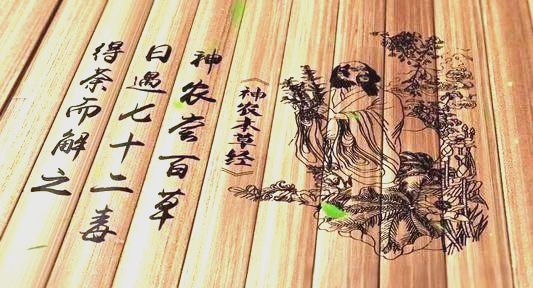 《神农本草经》
神农尝百草
日遇七十二毒
得荼而解之